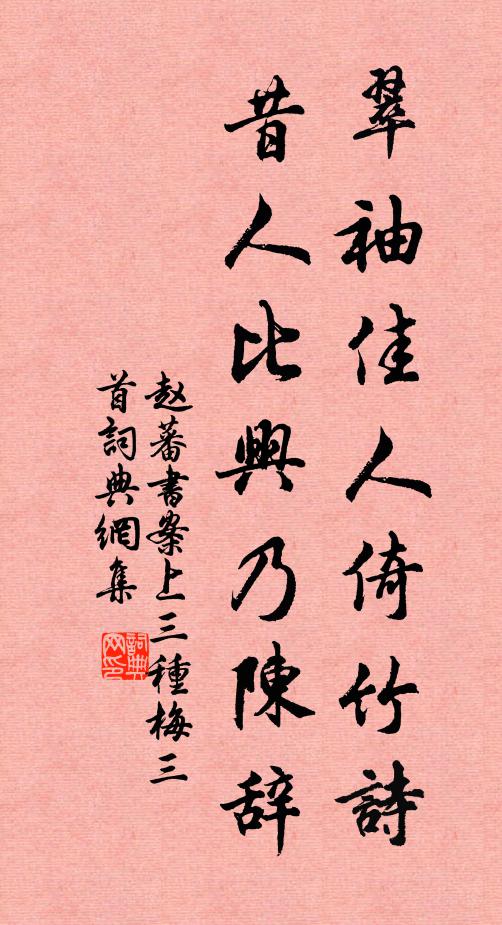 翠袖佳人倚竹詩
昔人比興乃陳辞
赵蕃書案上三種梅三
首詞典網集
詞典网印